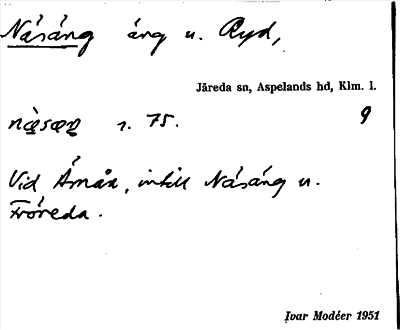 Näsäng äng u. Ryd,
Järeda sn, Aspelands hd, Klm. l.
næ̀sæŋ s. 75. 9
Vid Åmåx, intill Näsäng u.
Fröreda.
Ivar Modéer 1951